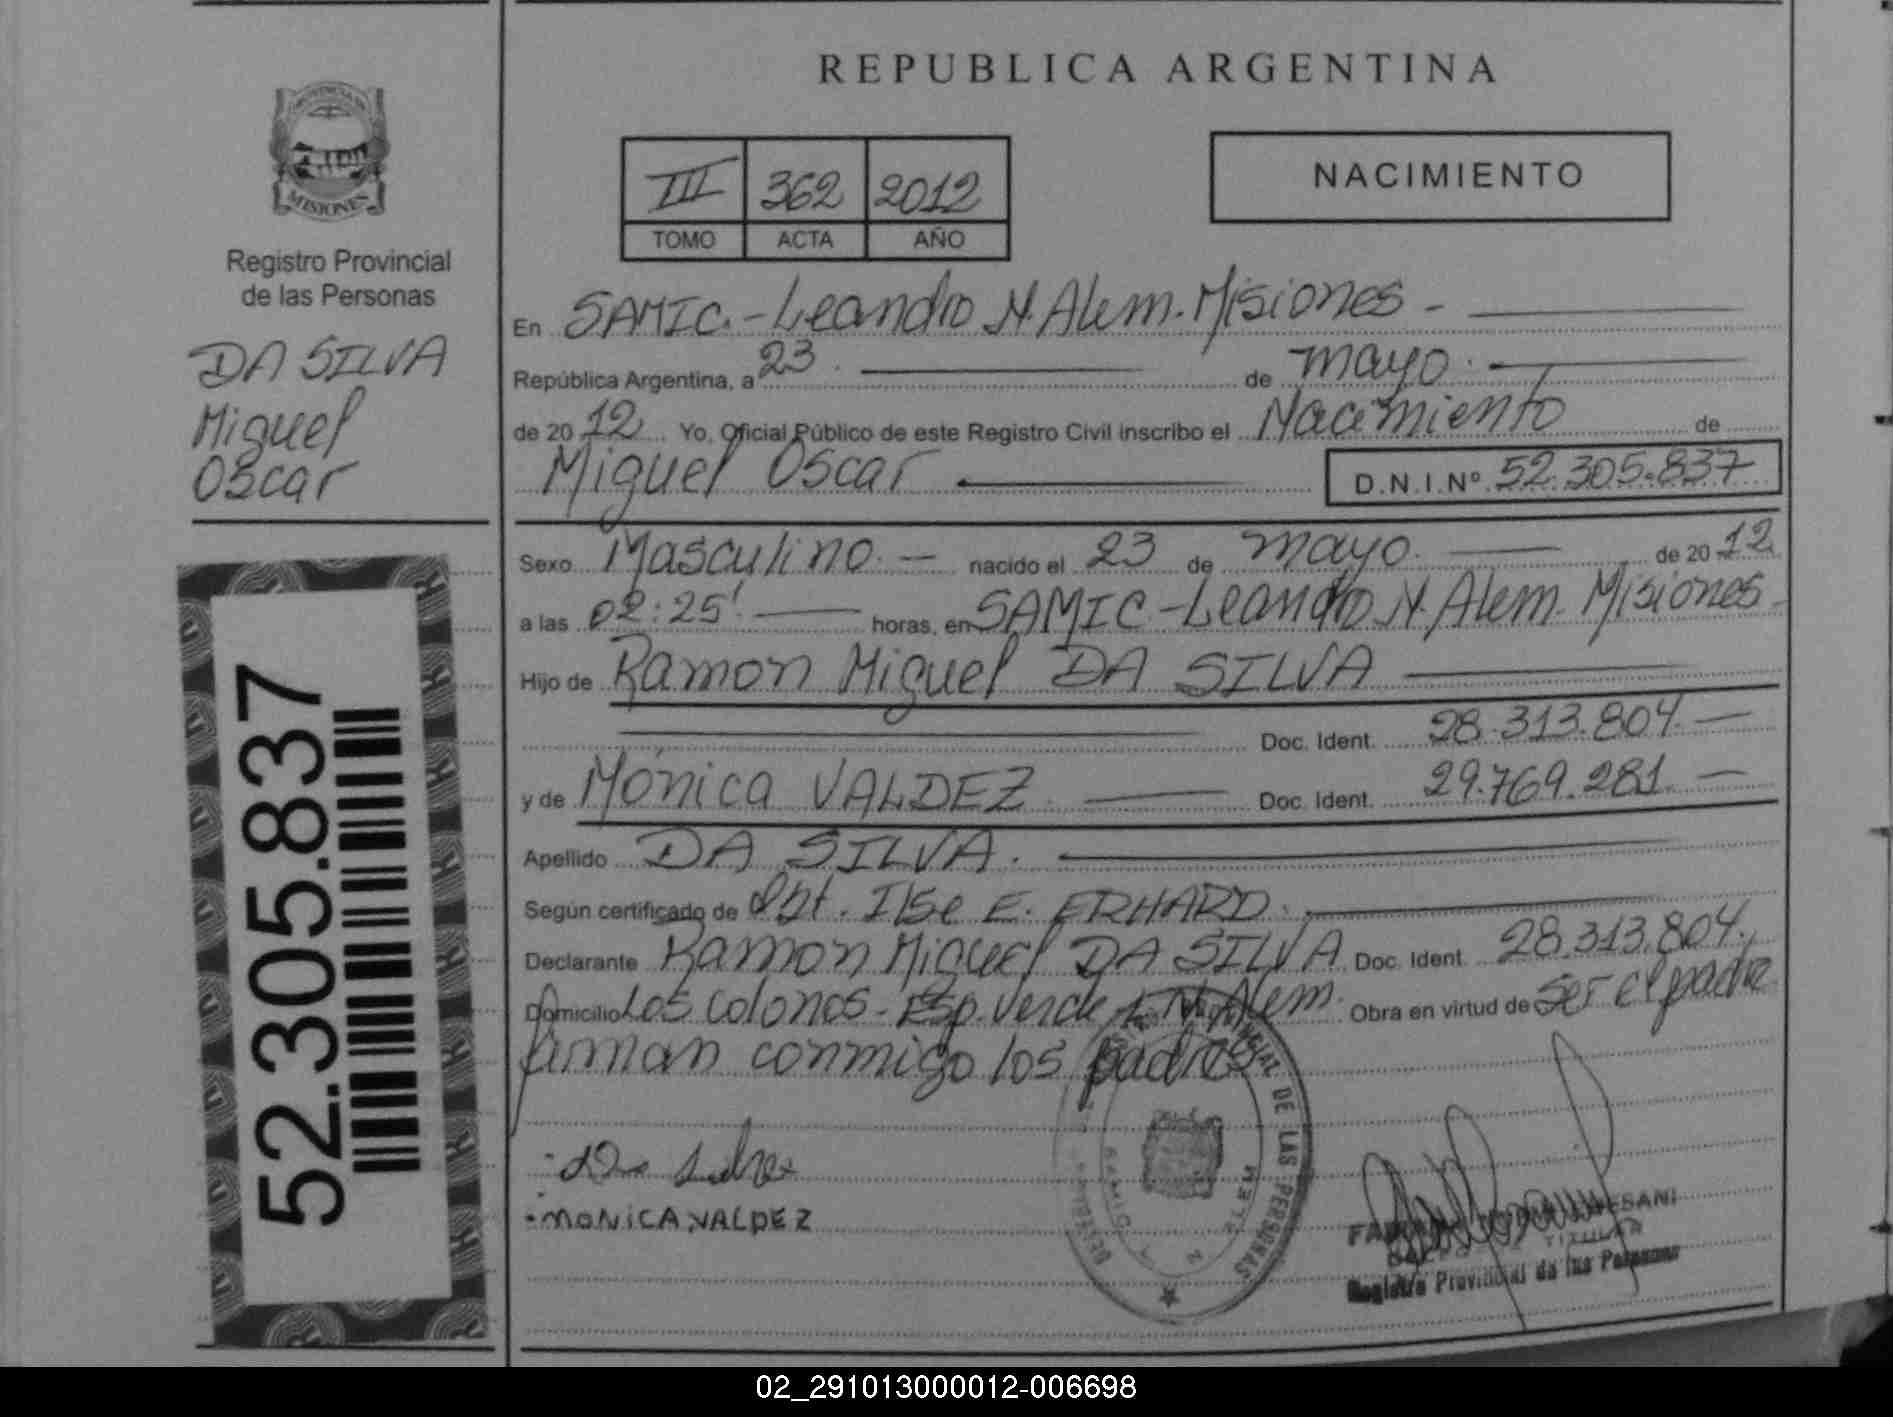 REPUBLICA ARGENTINA
PROVINCIA DE
MISIONES
Registro Provincial
de las Personas
DA SILVA
Miguel
Oscar
52.305.837
III 362 2012
TOMO ACTA AÑO
NACIMIENTO
En SAMIC.-Leandro N. Alem. Misiones -
República Argentina, a 23. de mayo.
de 2012 Yo, Oficial Público de este Registro Civil inscribo el Nacimiento de
Miguel Oscar D.N.I.Nº 52.305.837
Sexo Masculino.- nacido el 23 de mayo. de 2012
a las 02:25' horas, en SAMIC-Leandro N. Alem. Misiones-
Hijo de Ramon Miguel DA SILVA
Doc. Ident. 28.313.804.-
y de Mónica VALDEZ. Doc. Ident. 29.769.281.-
Apellido DA SILVA.
Según certificado de Obst. Ilse E. ERHARD.
Declarante Ramon Miguel DA SILVA. Doc. Ident. 28.313.804.
Domicilio Los Colonos-Esp. Verde-L.N.Alem. Obra en virtud de Ser el padre
firman conmigo los padres
Da Silva
MONICA VALDEZ
DE LAS PERSONAS
Registro Provincial de las Personas
02_291013000012-006698